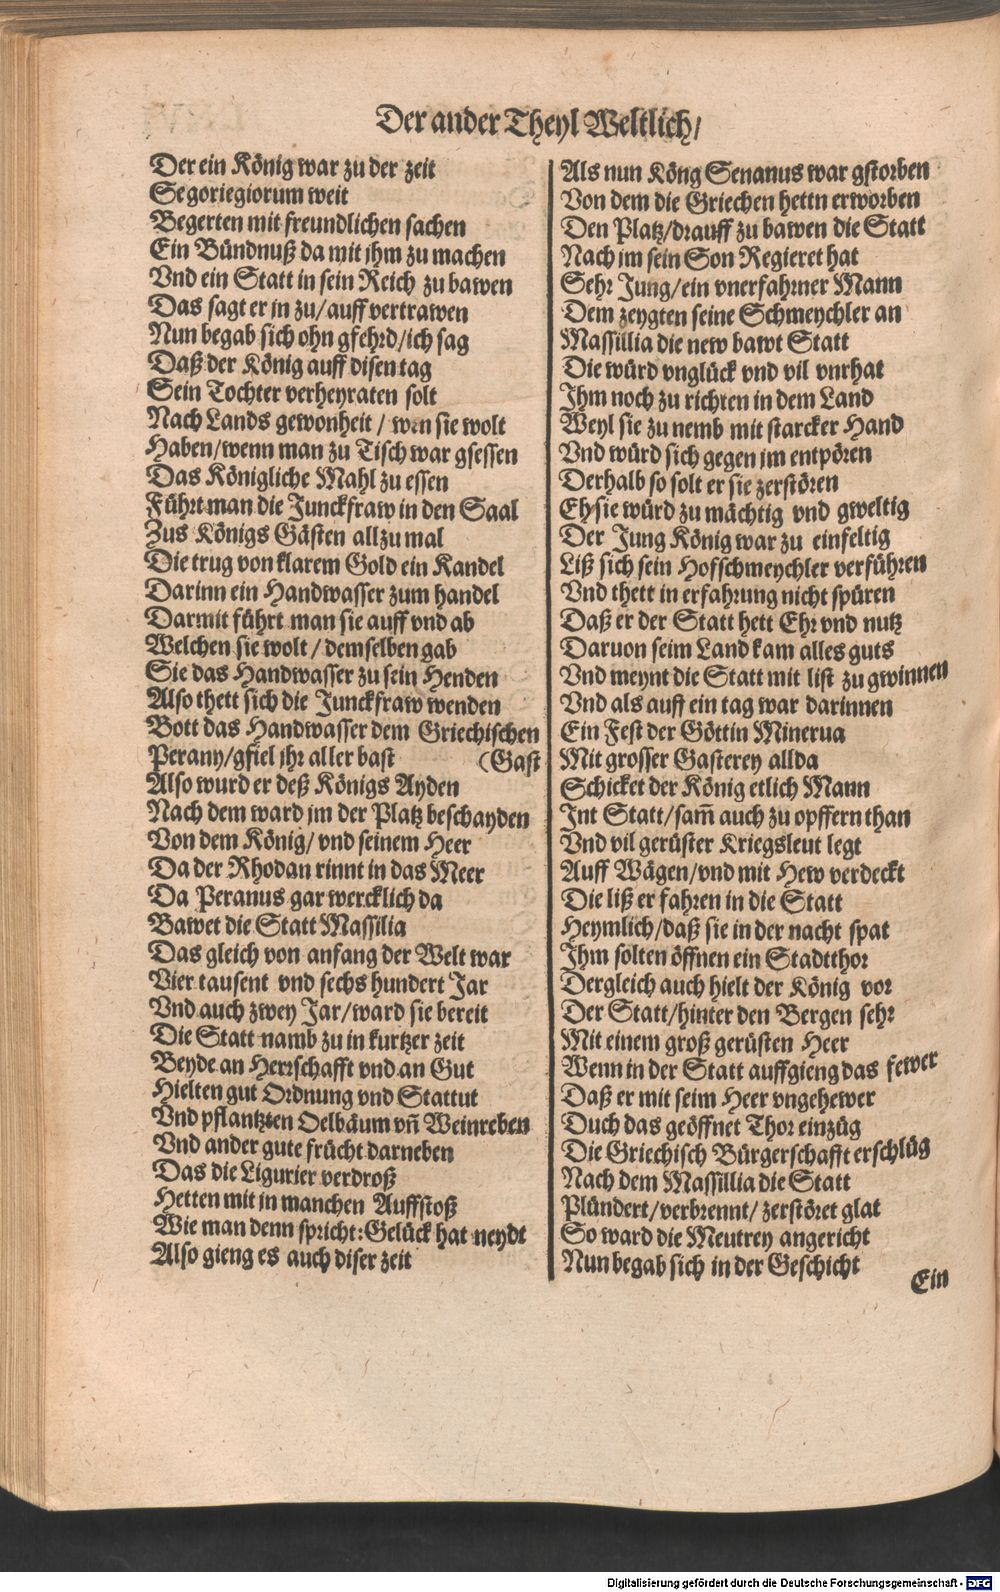 Der ander Theyl Weltlich/
Der ein König war zu der zeit
Segoriegiorum weit
Begerten mit freundlichen sachen
Ein Bündnuß da mit jhm zu machen
Vnd ein Statt in sein Reich zu bawen
Das sagt er in zu/auff vertrawen
Nun begab sich ohn gfehrd/ich sag
Daß der König auff disen tag
Sein Tochter verheyraten solt
Nach Lands gewonheit / wen sie wolt
Haben/wenn man zu Tisch war gsessen
Das Königliche Mahl zu essen
Führt man die Junckfraw in den Saal
Zus Königs Gästen allzu mal
Die trug von klarem Gold ein Kandel
Darinn ein Handwasser zum handel
Darmit führt man sie auff vnd ab
Welchen sie wolt / demselben gab
Sie das Handwasser zu sein Henden
Also thett sich die Junckfraw wenden
Bott das Handwasser dem Griechischen
Perany/gfiel jhr aller bast (Gast
Also wurd er deß Königs Ayden
Nach dem ward jm der Platz beschayden
Von dem König/ vnd seinem Heer
Da der Rhodan rinnt in das Meer
Da Peranus gar wercklich da
Bawet die Statt Massilia
Das gleich von anfang der Welt war
Vier tausent vnd sechs hundert Jar
Vnd auch zwey Jar/ward sie bereit
Die Statt namb zu in kurtzer zeit
Beyde an Herrschafft vnd an Gut
Hielten gut Ordnung vnd Stattut
Vnd pflantzten Oelbäum vñ Weinreben
Vnd ander gute frücht darneben
Das die Ligurier verdroß
Hetten mit in manchen Auffstoß
Wie man denn spricht: Gelück hat neydt
Also gieng es auch diser zeit
Als nun Köng Senanus war gstorben
Von dem die Griechen hettn erworben
Den Platz/drauff zu bawen die Statt
Nach jm sein Son Regieret hat
Sehr Jung/ein vnerfahrner Mann
Dem zeygten seine Schmeychler an
Massillia die new bawt Statt
Die würd vnglück vnd vil vnrhat
Ihm noch zu richten in dem Land
Weyl sie zu nemb mit starcker Hand
Vnd würd sich gegen jm entpören
Derhalb so solt er sie zerstören
Eh sie würd zu mächtig vnd gweltig
Der Jung König war zu einfeltig
Liß sich sein Hofschmeychler verführen
Vnd thett in erfahrung nicht spüren
Daß er der Statt hett Ehr vnd nutz
Daruon seim Land kam alles guts
Vnd meynt die Statt mit list zu gwinnen
Vnd als auff ein tag war darinnen
Ein Fest der Göttin Minerua
Mit grosser Gasterey allda
Schicket der König etlich Mann
Int Statt/sam̃ auch zu opffern than
Vnd vil gerüster Kriegsleut legt
Auff Wägen/vnd mit Hew verdeckt
Die liß er fahren in die Statt
Heymlich/daß sie in der nacht spat
Ihm solten öffnen ein Stadtthor
Dergleich auch hielt der König vor
Der Statt/hinter den Bergen sehr
Mit einem groß gerüsten Heer
Wenn in der Statt auffgieng das fewer
Daß er mit seim Heer vngehewer
Duch das geöffnet Thor einzüg
Die Griechisch Bürgerschafft erschlüg
Nach dem Massillia die Statt
Plündert/verbrennt/zerstöret glat
So ward die Meutrey angericht
Nun begab sich in der Geschicht
Ein
Digitalisierung gefördert durch die Deutsche Forschungsgemeinschaft - DFG